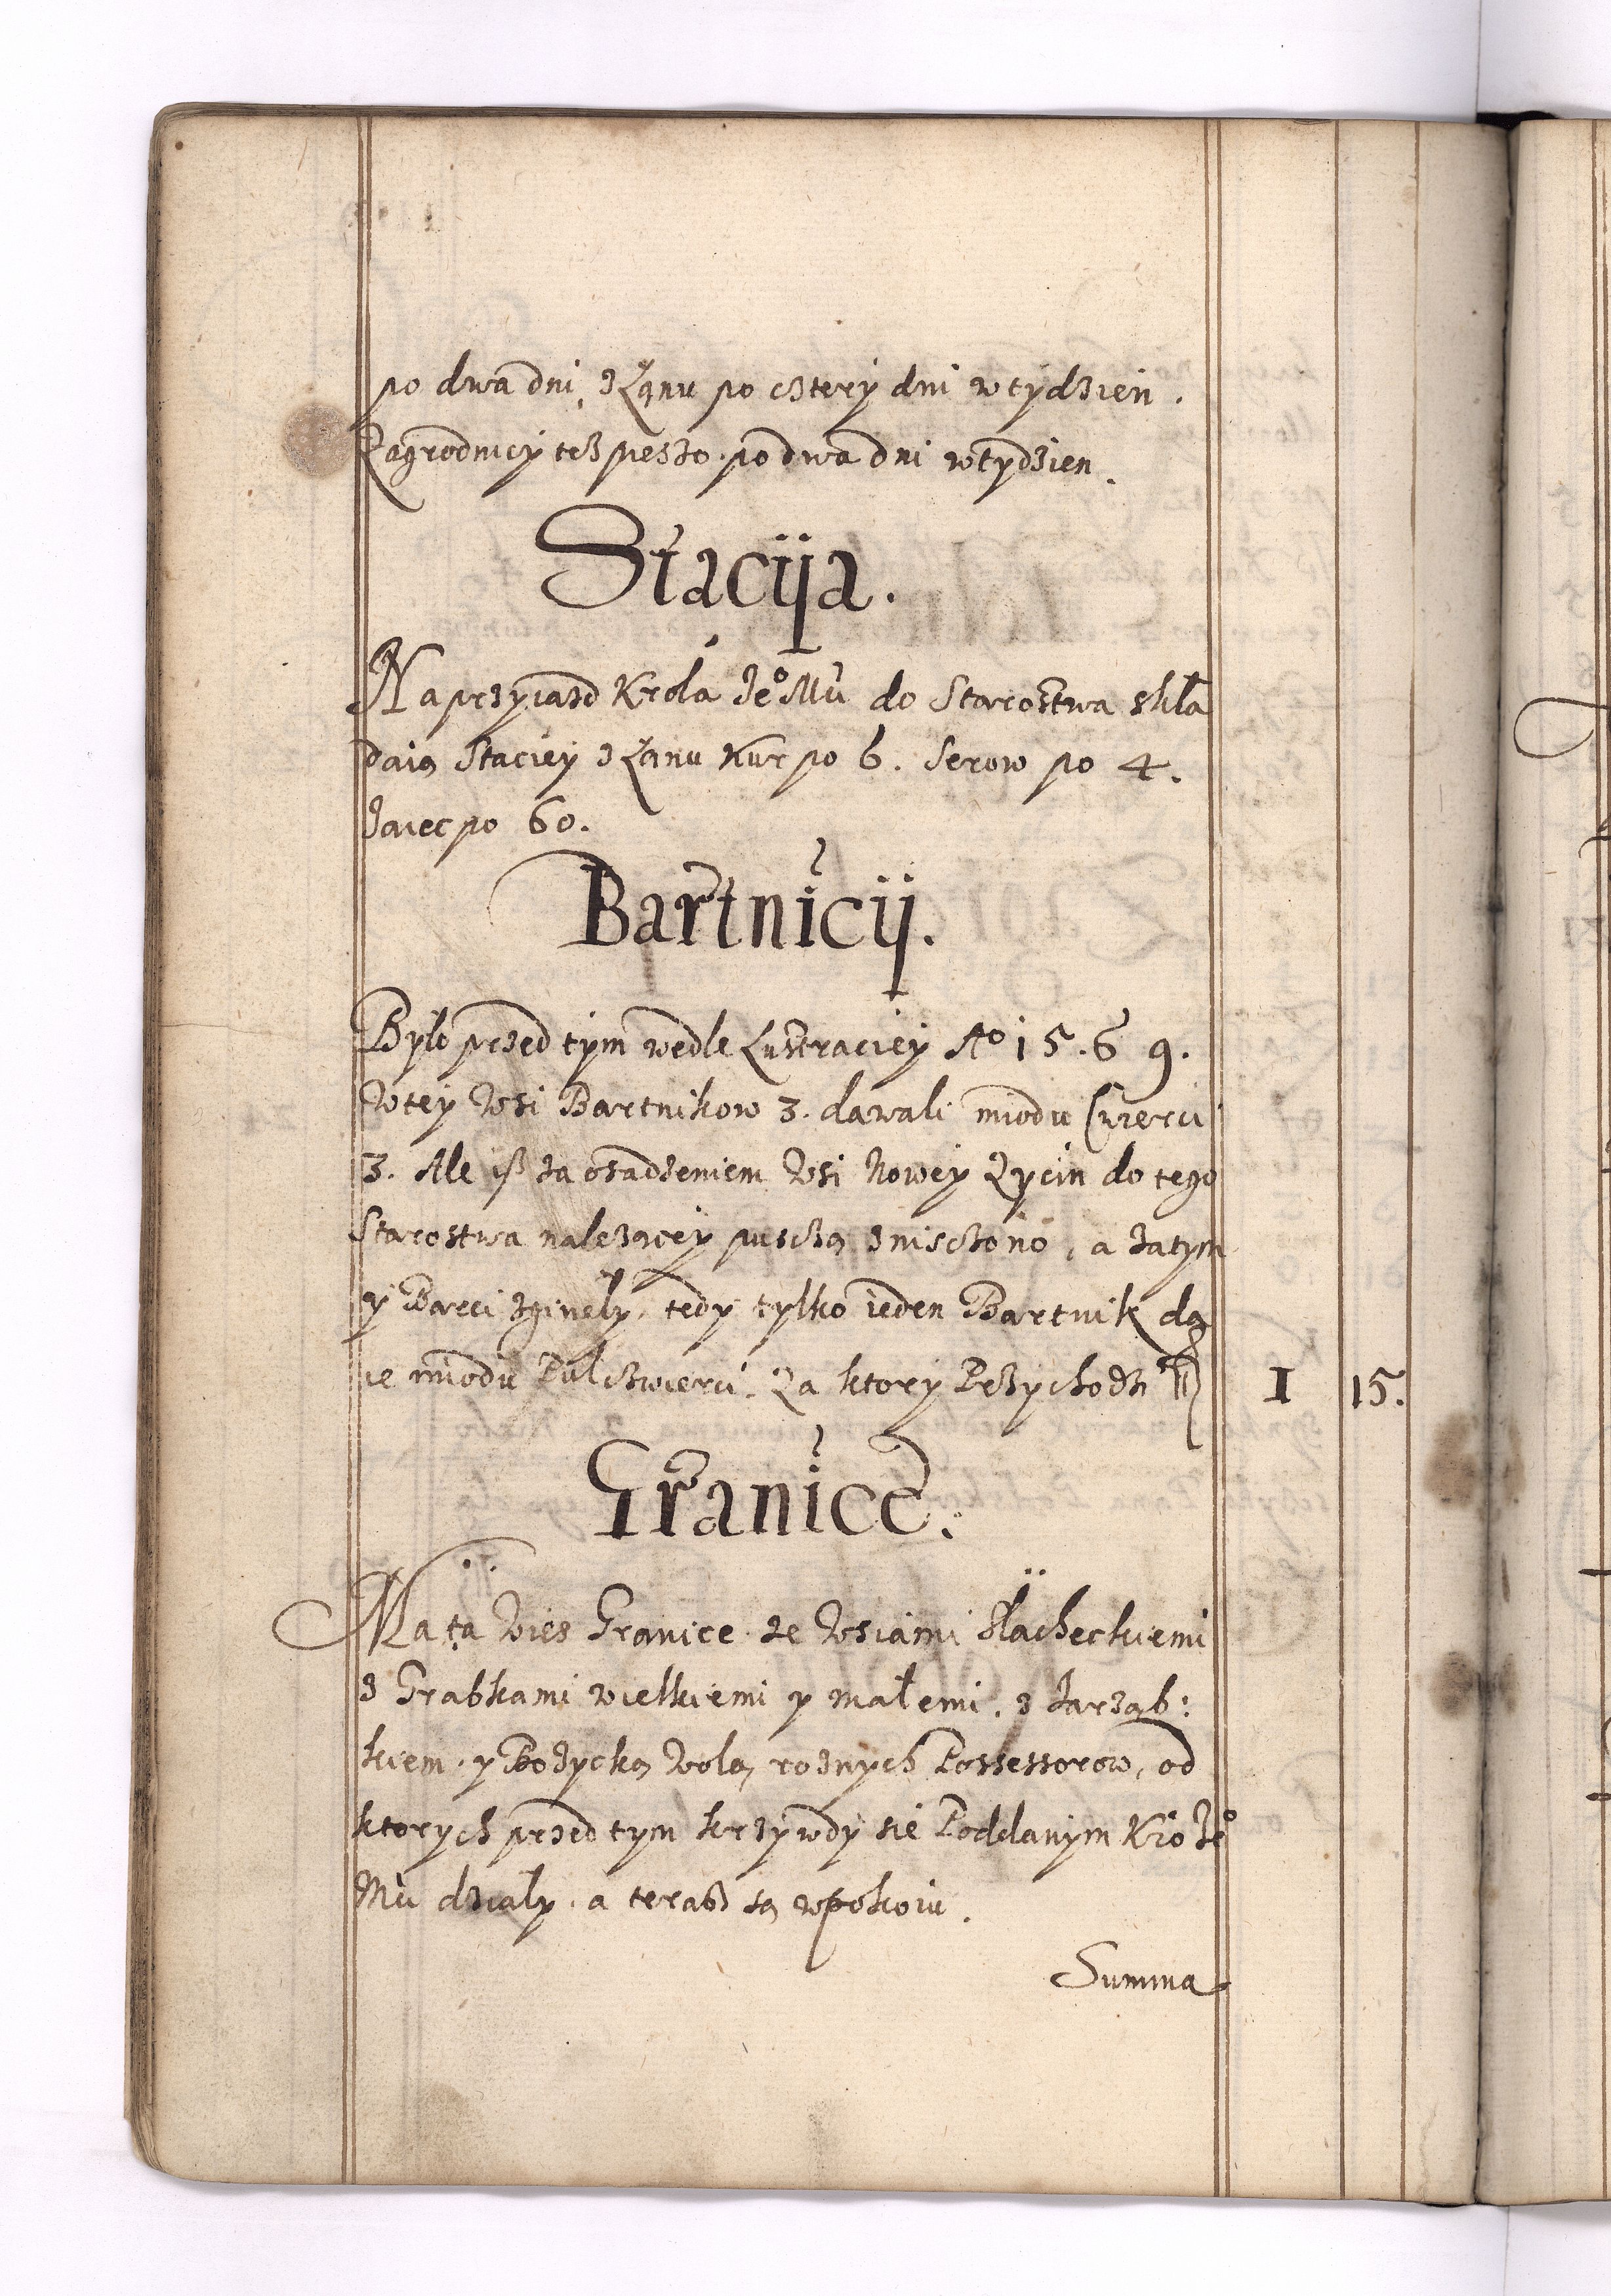 po dwa dni, z Łanu po cztery dni w tydzien.
Zagrodnicy tesz pieszo po dwa dni w tydzien.
Stacija.
Na przyiazd Krola Jeº Mci do Starostwa skła
daią Staciey z Łanu Kur po 6. Serow po 4.
Jaiec po 60.
Bartnicij.
Było przed tym wedle Lustraciey Aº 15.69.
W tey Wsi Bartnikow 3. dawali miodu Czwierci
3. Ale isz za osadzeniem Wsi Nowey Zycin do tego
Starostwa należącey puszczą zniszczono, a zatym
y Barci zginely, tedy tylko ieden Bartnik da
ie miodu Pulczwierci. Za ktory Przychodzi fl I 15.
Granice.
Ma ta Wies Granice ze Wsiami Slacheckiemi
z Grabkami wielkiemi y małemi, z Jarząb:
kiem, y Wolą roznych Possessorow, od
ktorych przed tym krzywdy sie Poddanym Kro Jeº
Mci dzialy, a terasz są w pokoiu.
Summa